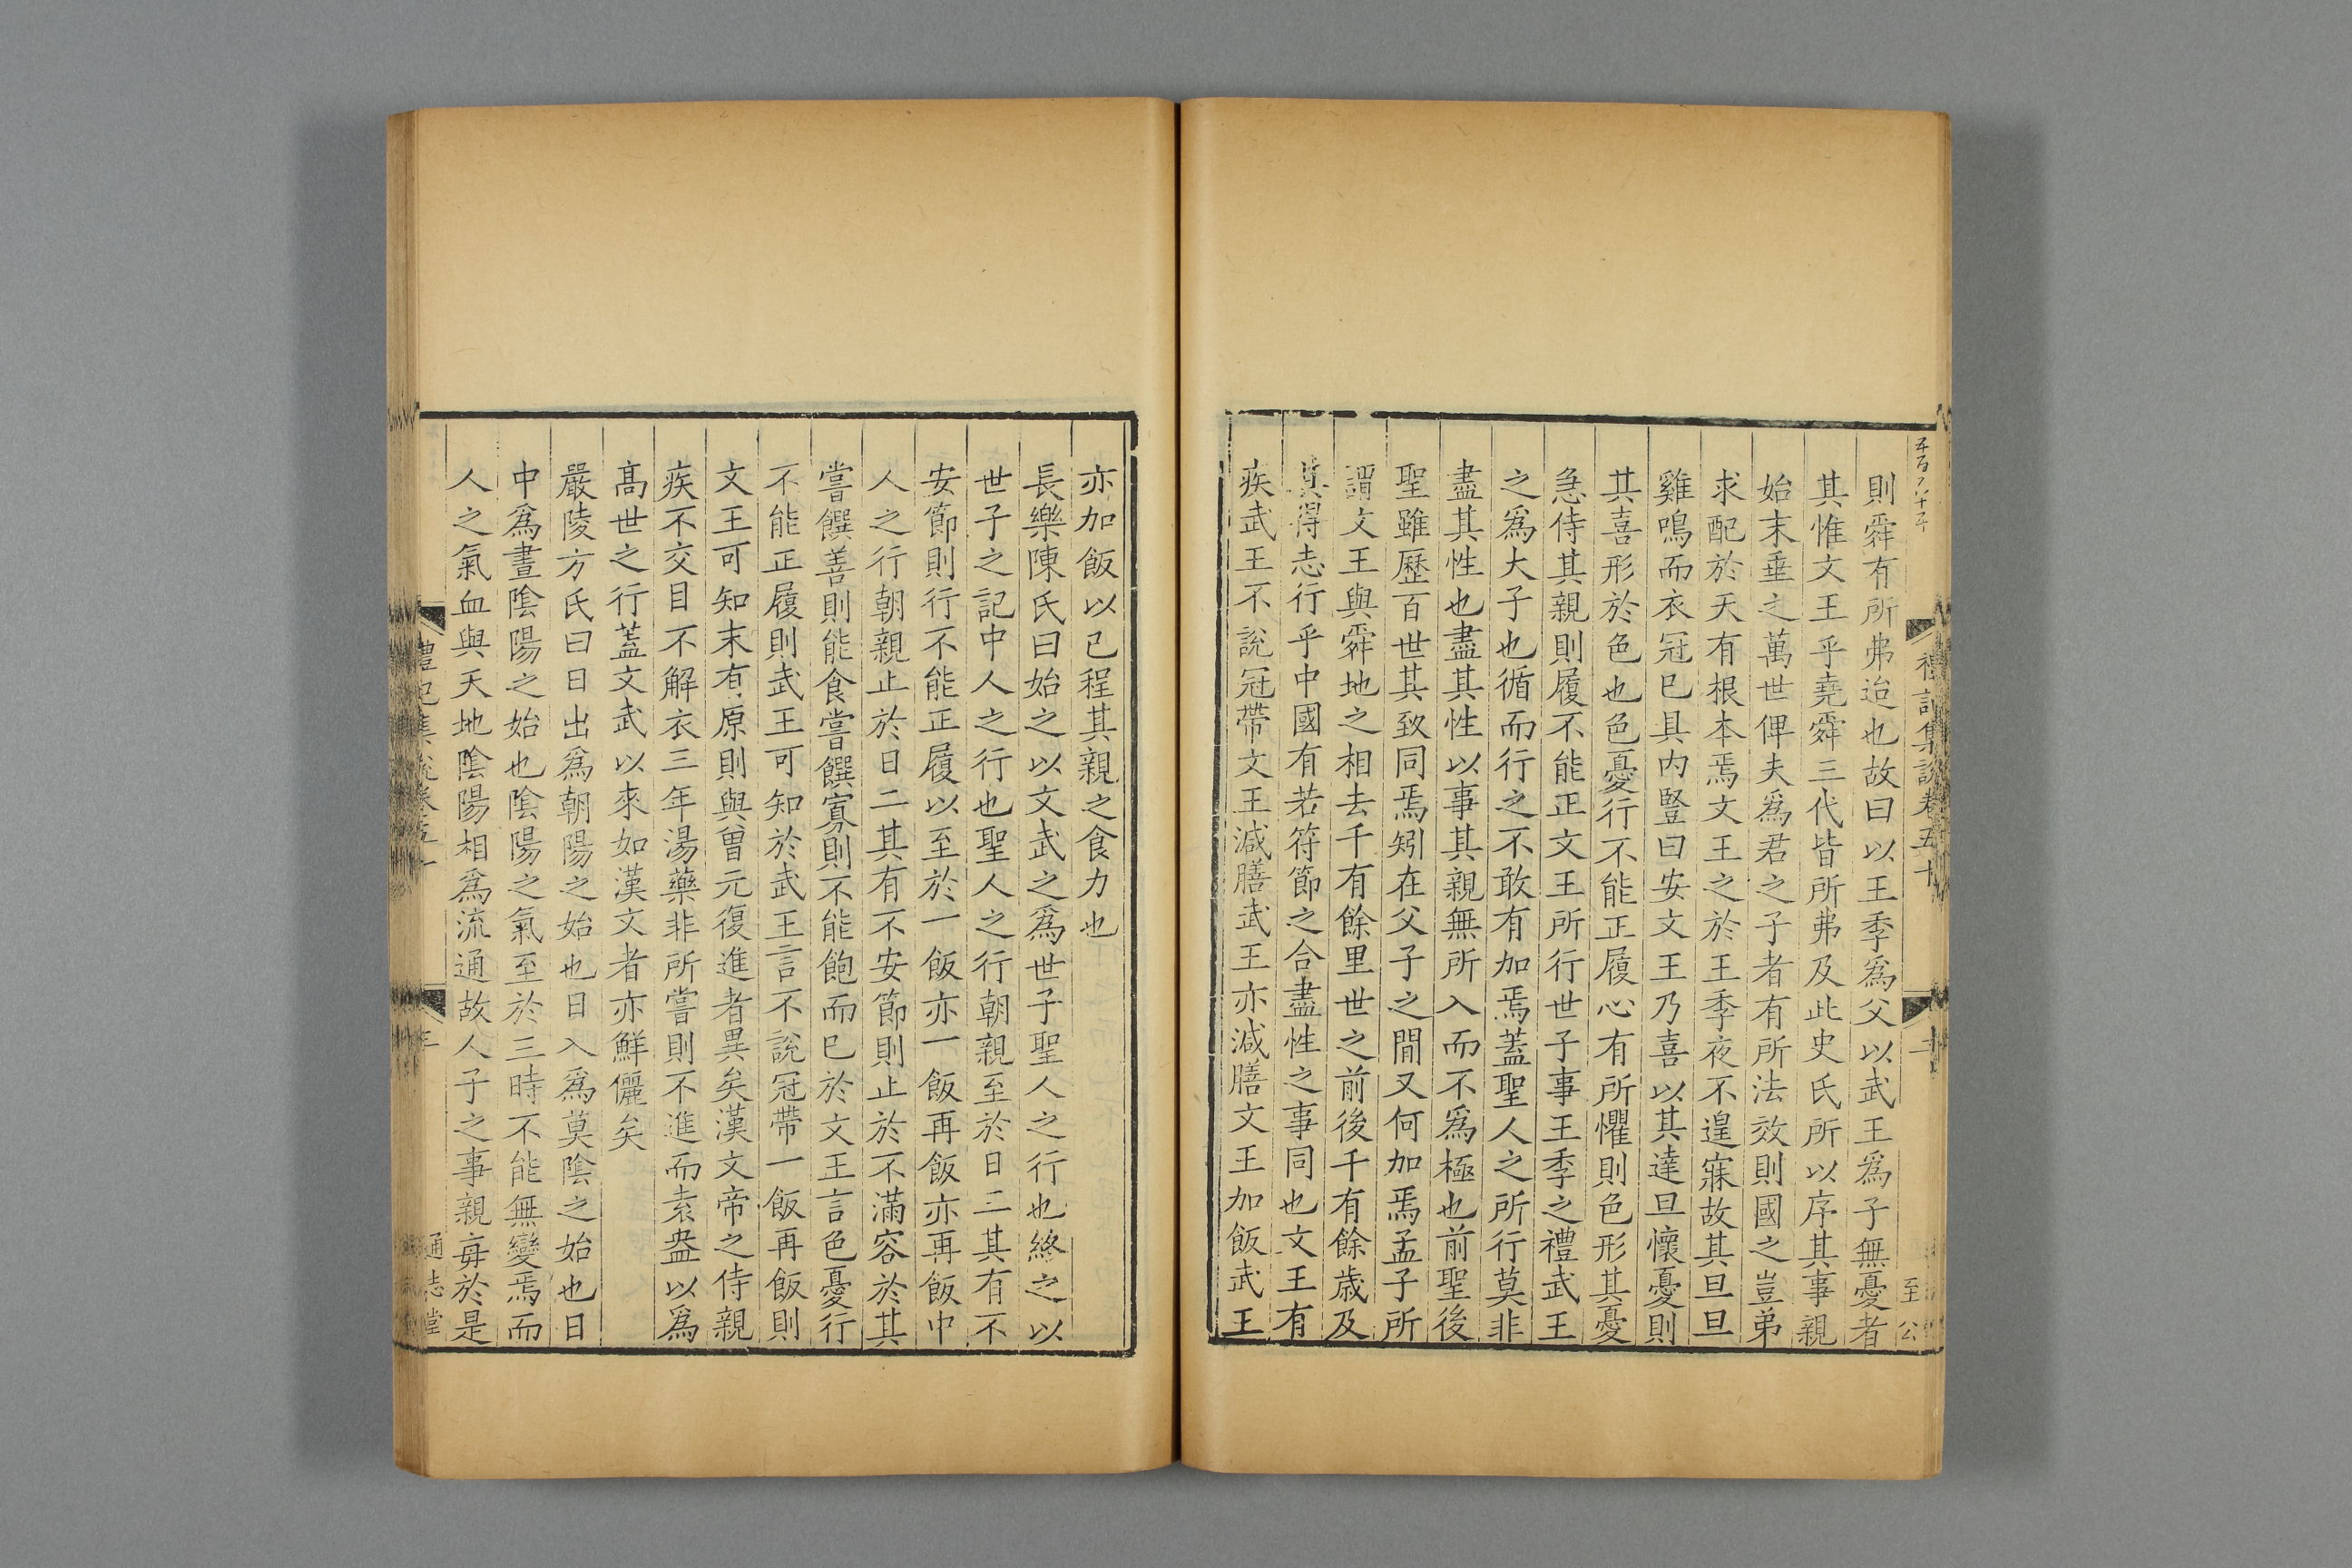 則舜有所弗迨也故曰以王季爲父以武王爲子無憂者
其惟文王乎堯舜三代皆所弗及此史氏所以序其事親
始末垂之萬世俾夫爲君之子者有所法效則國之豈弟
求配於天有根本焉文王之於王季夜不遑寐故其旦旦
雞鳴而衣冠已具内豎曰安文王乃喜以其達旦懷憂則
其喜形於色也色憂行不能正履心有所懼則色形其憂
急侍其親則履不能正文王所行世子事王季之禮武王
之爲大子也循而行之不敢有加焉蓋聖人之所行莫非
盡其性也盡其性以事其親無所入而不爲極也前聖後
聖雖歷百世其致同焉矧在父子之間又何加焉孟子所
謂文王與舜地之相去千有餘里世之前後千有餘歲及
其得志行乎中國有若符節之合盡性之事同也文王有
疾武王不說冠帶文王減膳武王亦減膳文王加飯武王
亦加飯以己程其親之食力也
長樂陳氏曰始之以文武之爲世子聖人之行也終之以
世子之記中人之行也聖人之行朝親至於日三其有不
安節則行不能正履以至於一飯亦一飯再飯亦再飯中
人之行朝親止於日二其有不安節則止於不滿容於其
嘗饌善則能食嘗饌寡則不能飽而已於文王言色憂行
不能正履則武王可知於武王言不說冠帶一飯再飯則
文王可知末有原則與曾元復進者異矣漢文帝之侍親
疾不交目不解衣三年湯藥非所嘗則不進而袁盎以爲
高世之行蓋文武以來如漢文者亦鮮儷矣
嚴陵方氏曰日出爲朝陽之始也日入爲莫陰之始也日
中爲晝陰陽之始也陰陽之氣至於三時不能無變焉而
人之氣血與天地陰陽相爲流通故人子之事親毎於是
禮記集說卷五十
至公
通志堂